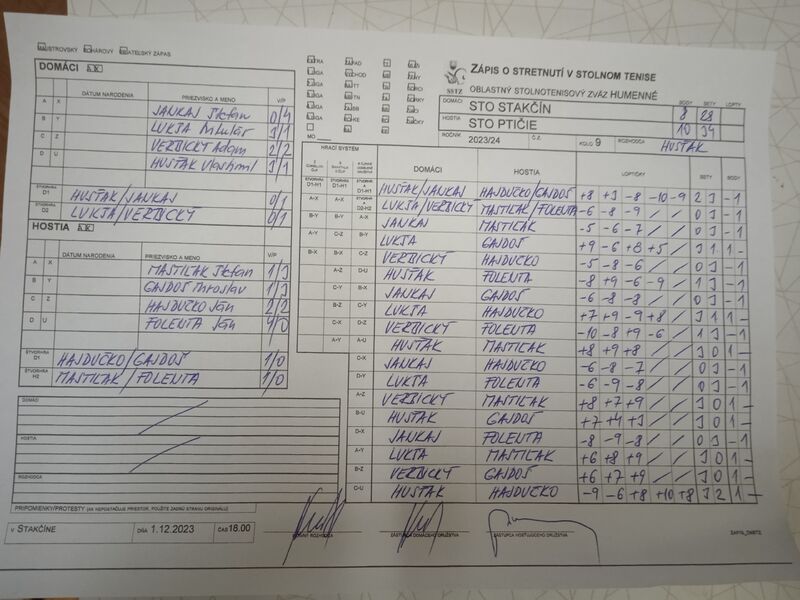 MAJSTROVSKÝ POHÁROVÝ PRIATEĽSKÝ ZÁPAS
ZÁPIS O STRETNUTÍ V STOLNOM TENISE
OBLASTNÝ STOLNOTENISOVÝ ZVÄZ HUMENNÉ
SSTZ
BODY SETY LOPTY
DOMÁCI STO STAKČÍN 8 28
HOSTIA STO PTIČIE 10 34
ROČNÍK 2023/24 Č.Z. KOLO 9 ROZHODCA HUSŤAK
DOMÁCI AX
DÁTUM NARODENIA PRIEZVISKO A MENO V/P
A X JANKAJ Štefan 0/4
B Y LUKJA Miluláš 3/1
C Z VERBICKÝ Adam 2/2
D U HUSŤAK Vlastimil 3/1
ŠTVORHRA D1 HUSŤAK/JANKAJ 0/1
ŠTVORHRA D2 LUKJA/VERBICKÝ 0/1
HOSTIA AX
DÁTUM NARODENIA PRIEZVISKO A MENO V/P
A X MASTIĽAK Štefan 1/3
B Y GAJDOŠ Miroslav 1/3
C Z HAJDUČKO Ján 2/2
D U FOLENTA Ján 4/0
ŠTVORHRA D1 HAJDUČKO/GAJDOŠ 1/0
ŠTVORHRA H2 MASTIĽAK/FOLENTA 1/0
HRACÍ SYSTÉM DOMÁCI HOSTIA LOPTIČKY SETY BODY
D1-H1 HUSŤAK/JANKAJ HAJDUČKO/GAJDOŠ +8 +3 -8 -10 -9 2 3 - 1
D2-H2 LUKJA/VERBICKÝ MASTIĽAK/FOLENTA -6 -8 -9 / / 0 3 - 1
A-X JANKAJ MASTIĽAK -5 -6 -7 / / 0 3 - 1
B-Y LUKJA GAJDOŠ +9 -6 +8 +5 / 3 1 1 -
C-Z VERBICKÝ HAJDUČKO -5 -8 -6 / / 0 3 - 1
D-U HUSŤAK FOLENTA -8 +9 -6 -9 / 1 3 - 1
JANKAJ GAJDOŠ -6 -8 -8 / / 0 3 - 1
LUKJA HAJDUČKO +7 +9 -9 +8 / 3 1 1 -
VERBICKÝ FOLENTA -10 -8 +9 -6 / 1 3 - 1
HUSŤAK MASTIĽAK +8 +9 +8 / / 3 0 1 -
C-X JANKAJ HAJDUČKO -6 -8 -7 / / 0 3 - 1
D-Y LUKJA FOLENTA -6 -9 -8 / / 0 3 - 1
A-Z VERBICKÝ MASTIĽAK +8 +7 +9 / / 3 0 1 -
B-U HUSŤAK GAJDOŠ +7 +4 +3 / / 3 0 1 -
D-X JANKAJ FOLENTA -8 -9 -8 / / 0 3 - 1
A-Y LUKJA MASTIĽAK +6 +8 +9 / / 3 0 1 -
B-Z VERBICKÝ GAJDOŠ +6 +7 +9 / / 3 0 1 -
C-U HUSŤAK HAJDUČKO -9 -6 +8 +10 +8 3 2 1 -
DOMÁCI
HOSTIA
ROZHODCA
PRIPOMIENKY/PROTESTY (AK NEPOSTAČUJE PRIESTOR, POUŽITE ZADNÚ STRANU ORIGINÁLU)
V STAKČÍNE DŇA 1.12.2023 ČAS 18.00
HLAVNÝ ROZHODCA ZÁSTUPCA DOMÁCEHO DRUŽSTVA ZÁSTUPCA HOSŤUJÚCEHO DRUŽSTVA